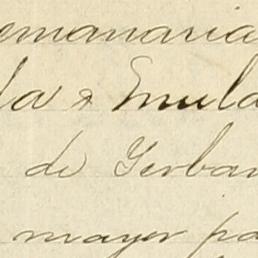 emanaria
la & Emula
de Gerban
mayor pa